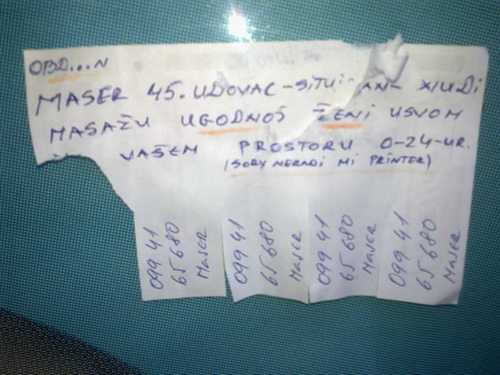 OBD...N
MASER 45. UDOVAC-SITUI AN NUDI
MASAŽU UGODNOŠ ŽENI USVOM
VAŠEM PROSTORU 0-24-UR.
(SORY NERADI MI PRINTER)
099 41
65 680
MASER
099 41
65 680
MASER
099 41
65 680
MASER
099 41
65 680
MASER